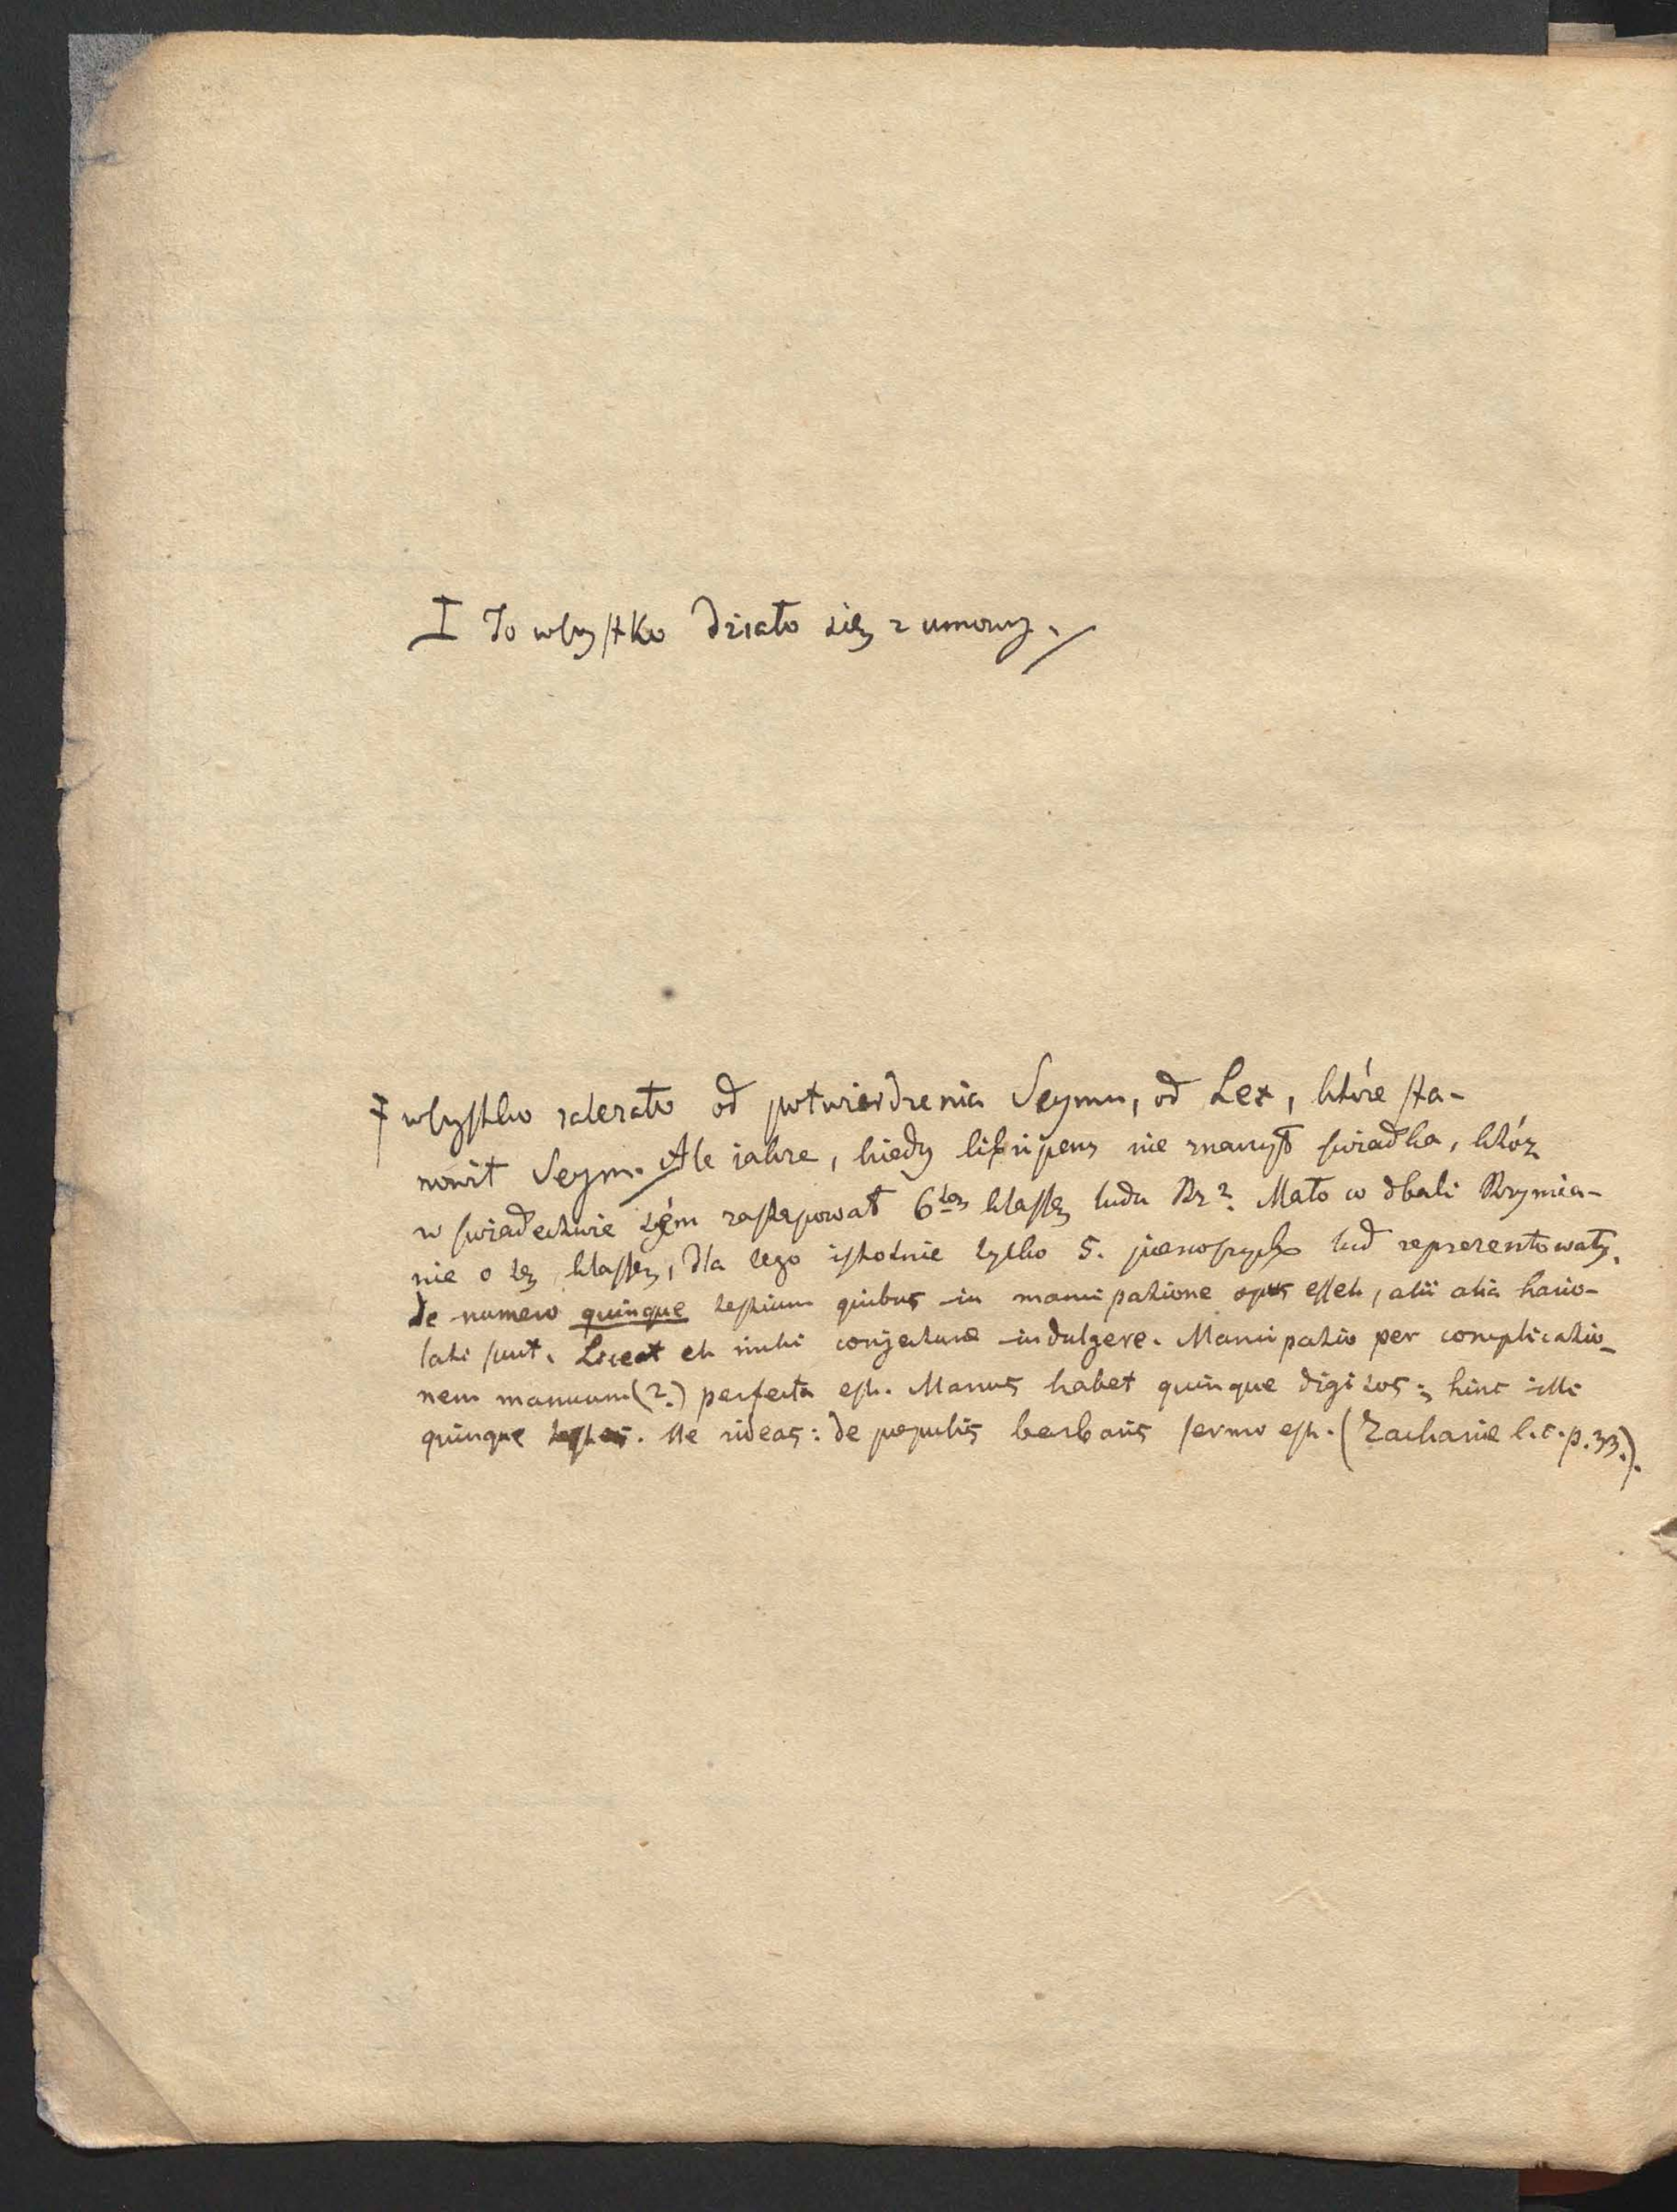 I To wszystko działo się z umowy.
‡ wszystko zależało od potwierdzenia Seymu, od Lex, które sta-
nowił Seym. Ale jakże, kiedy libripens nie znanym świadka, któż
w świadectwie tém zastępował 6tą klassę ludu Rz? Mało co dbali Rzymia-
nie o tę klassę, dla tego istotnie tylko 5. pierwszych lud reprezentowały.
De numero quinque testium quibus in mancipatione opus esset, alii alia hario-
lati sunt. Liceat et mihi conjecturae indulgere. Mancipatio per complicatio-
nem manuum (?) perfecta est. Manus habet quinque digitos; hinc illi
quinque testes. Ne rideas: de populis barbaris sermo est. (Zachariae l. c. p. 33.).